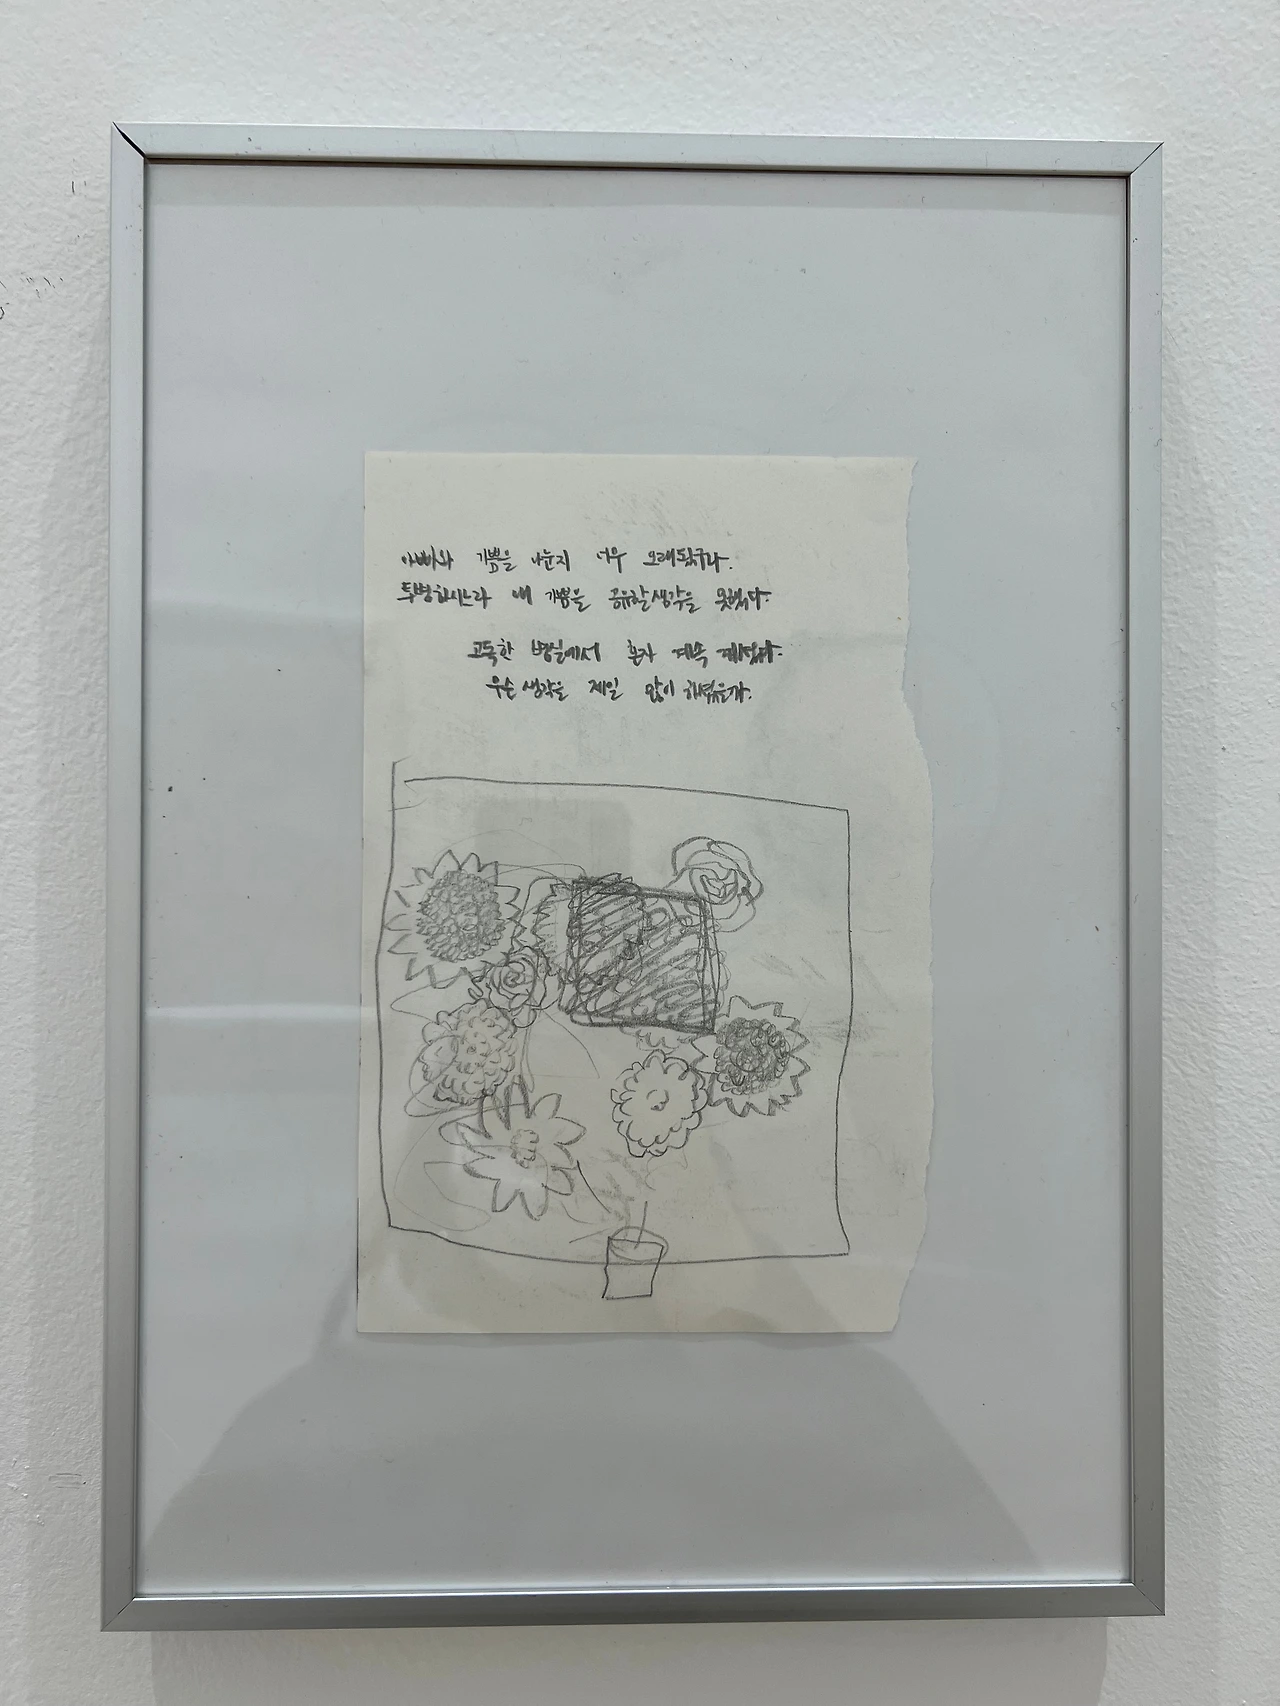 아빠와 기쁨을 나눈지 너무 오래됐구나.
투병하시느라 내 기쁨을 공유할 생각을 못했다.
고독한 병실에서 혼자 계속 계셨다.
무슨 생각을 제일 많이 하셨을까.